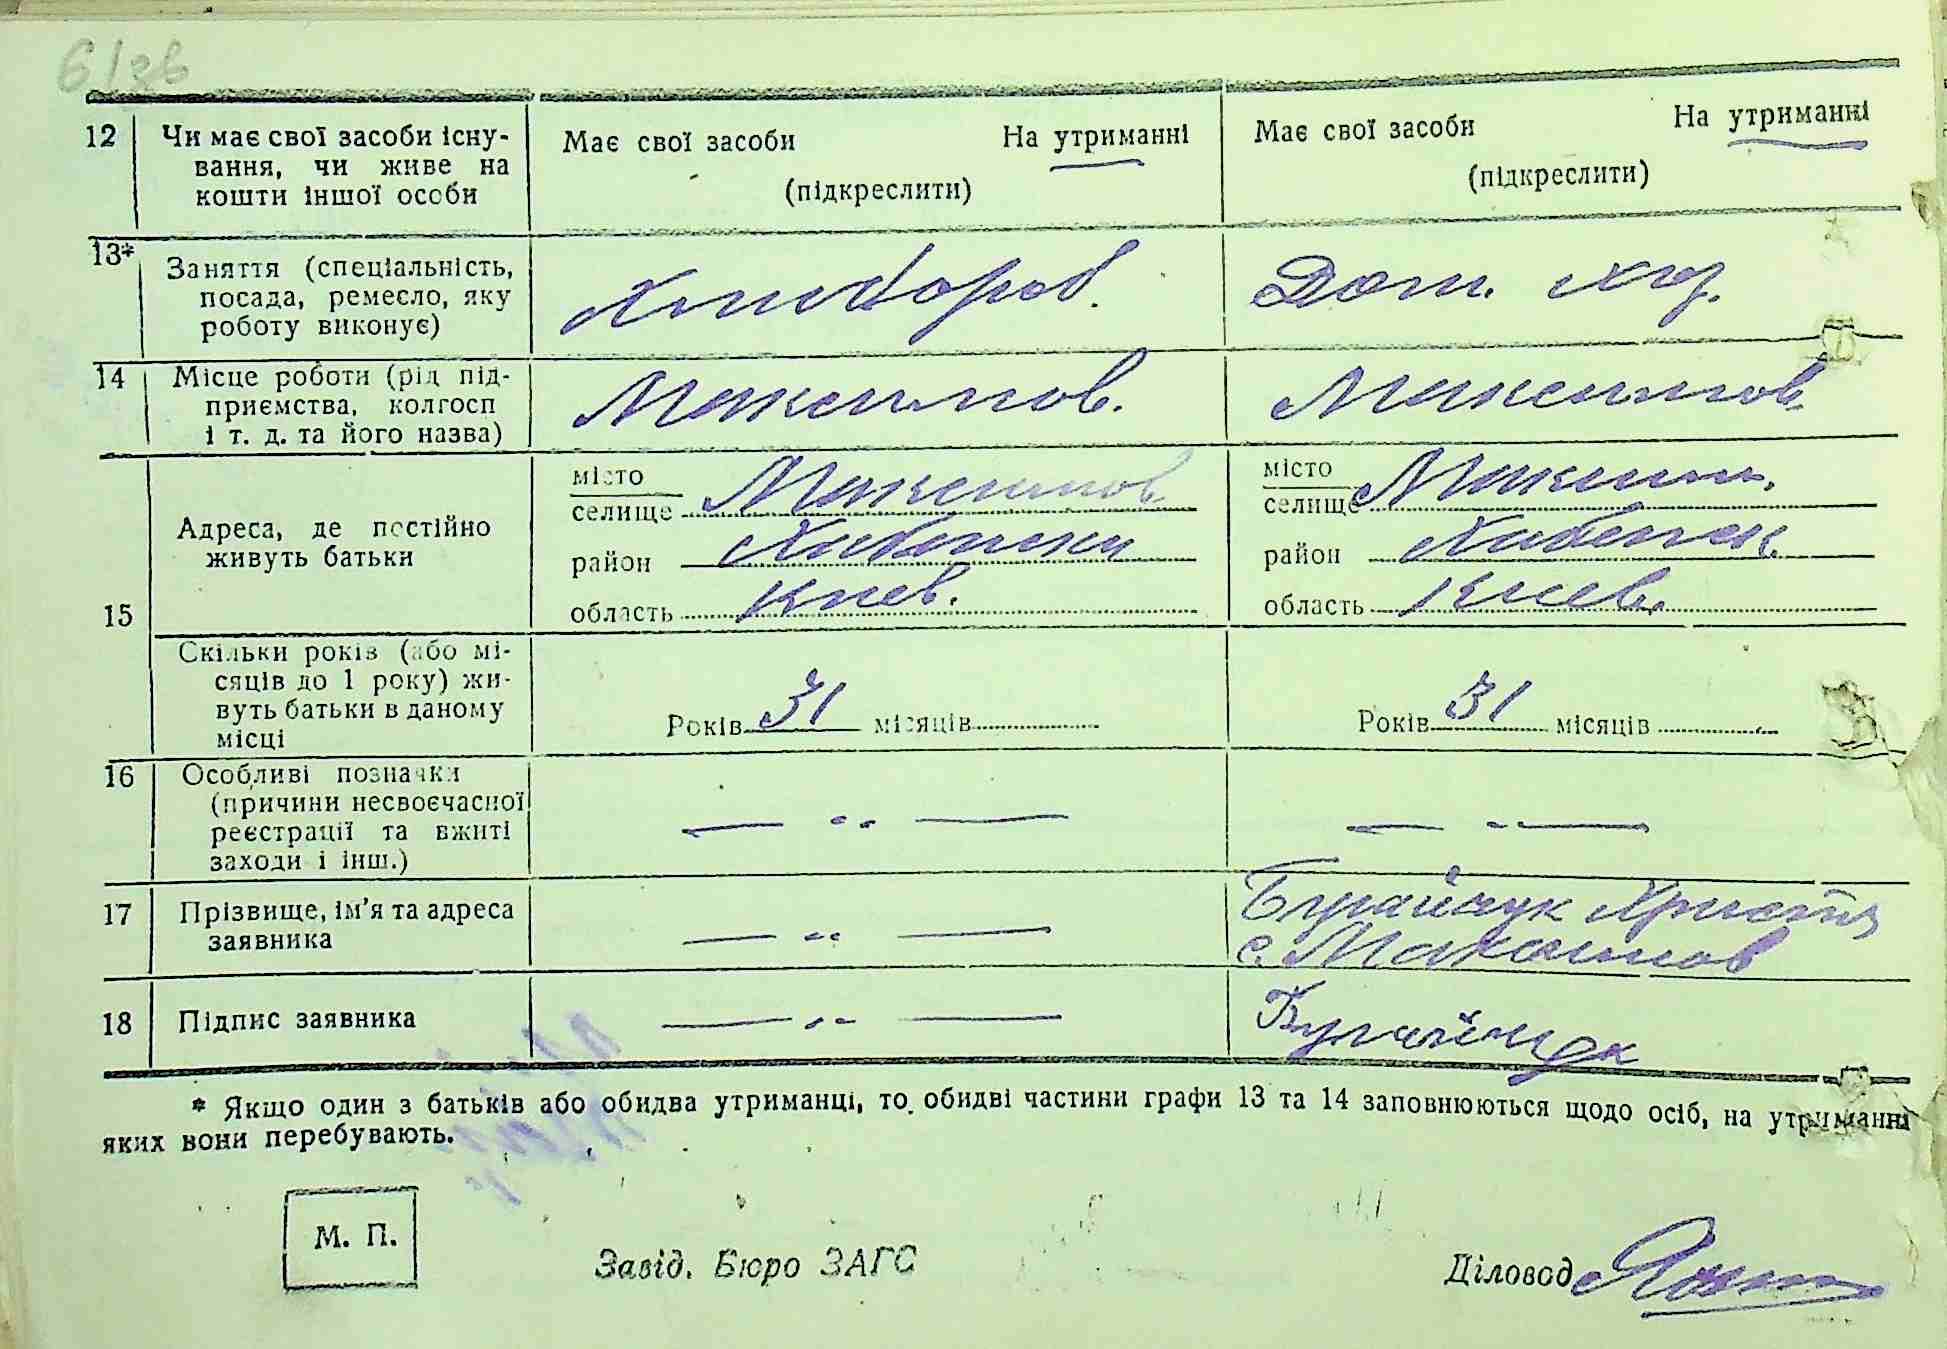 6/36
12 Чи має свої засоби існу-
вання, чи живе на
кошти іншої особи
Має свої засоби На утриманні
(підкреслити)
Має свої засоби На утриманні
(підкреслити)
13* Заняття (спеціальність,
посада, ремесло, яку
роботу виконує)
Хлибороб.
Дом. хоз.
14 Місце роботи (рід під-
приємства, колгосп
і т. д. та його назва)
Максимов.
Максимов.
15 Адреса, де постійно
живуть батьки
місто
селище Максимов
район
область Киев.
місто
селище Максим.
район
область Киев.
Скільки років (або мі-
сяців до 1 року) жи-
вуть батьки в даному
місці
Років 31 місяців
Років 31 місяців
16 Особливі позначки
(причини несвоєчасної
реєстрації та вжиті
заходи і інш.)
— „ —
— „ —
17 Прізвище, ім'я та адреса
заявника
— „ —
Бугайчук Христя
с. Максимов
18 Підпис заявника
— „ —
Бугайчук
* Якщо один з батьків або обидва утриманці, то обидві частини графи 13 та 14 заповнюються щодо осіб, на утриманні
яких вони перебувають.
М. П.
Завід. Бюро ЗАГС
Діловод